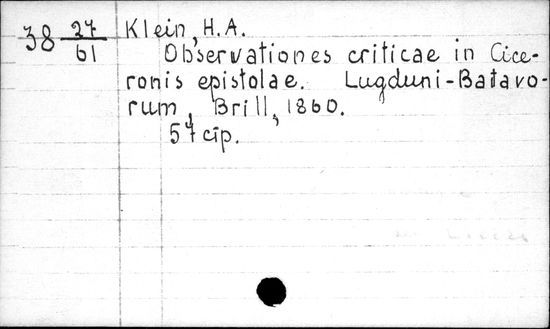 38 27/61 Klein, H.A.
Observationes criticae in Cice-
ronis epistolae. Lugduni-Batavo-
rum, Brill, 1860.
57 cip.